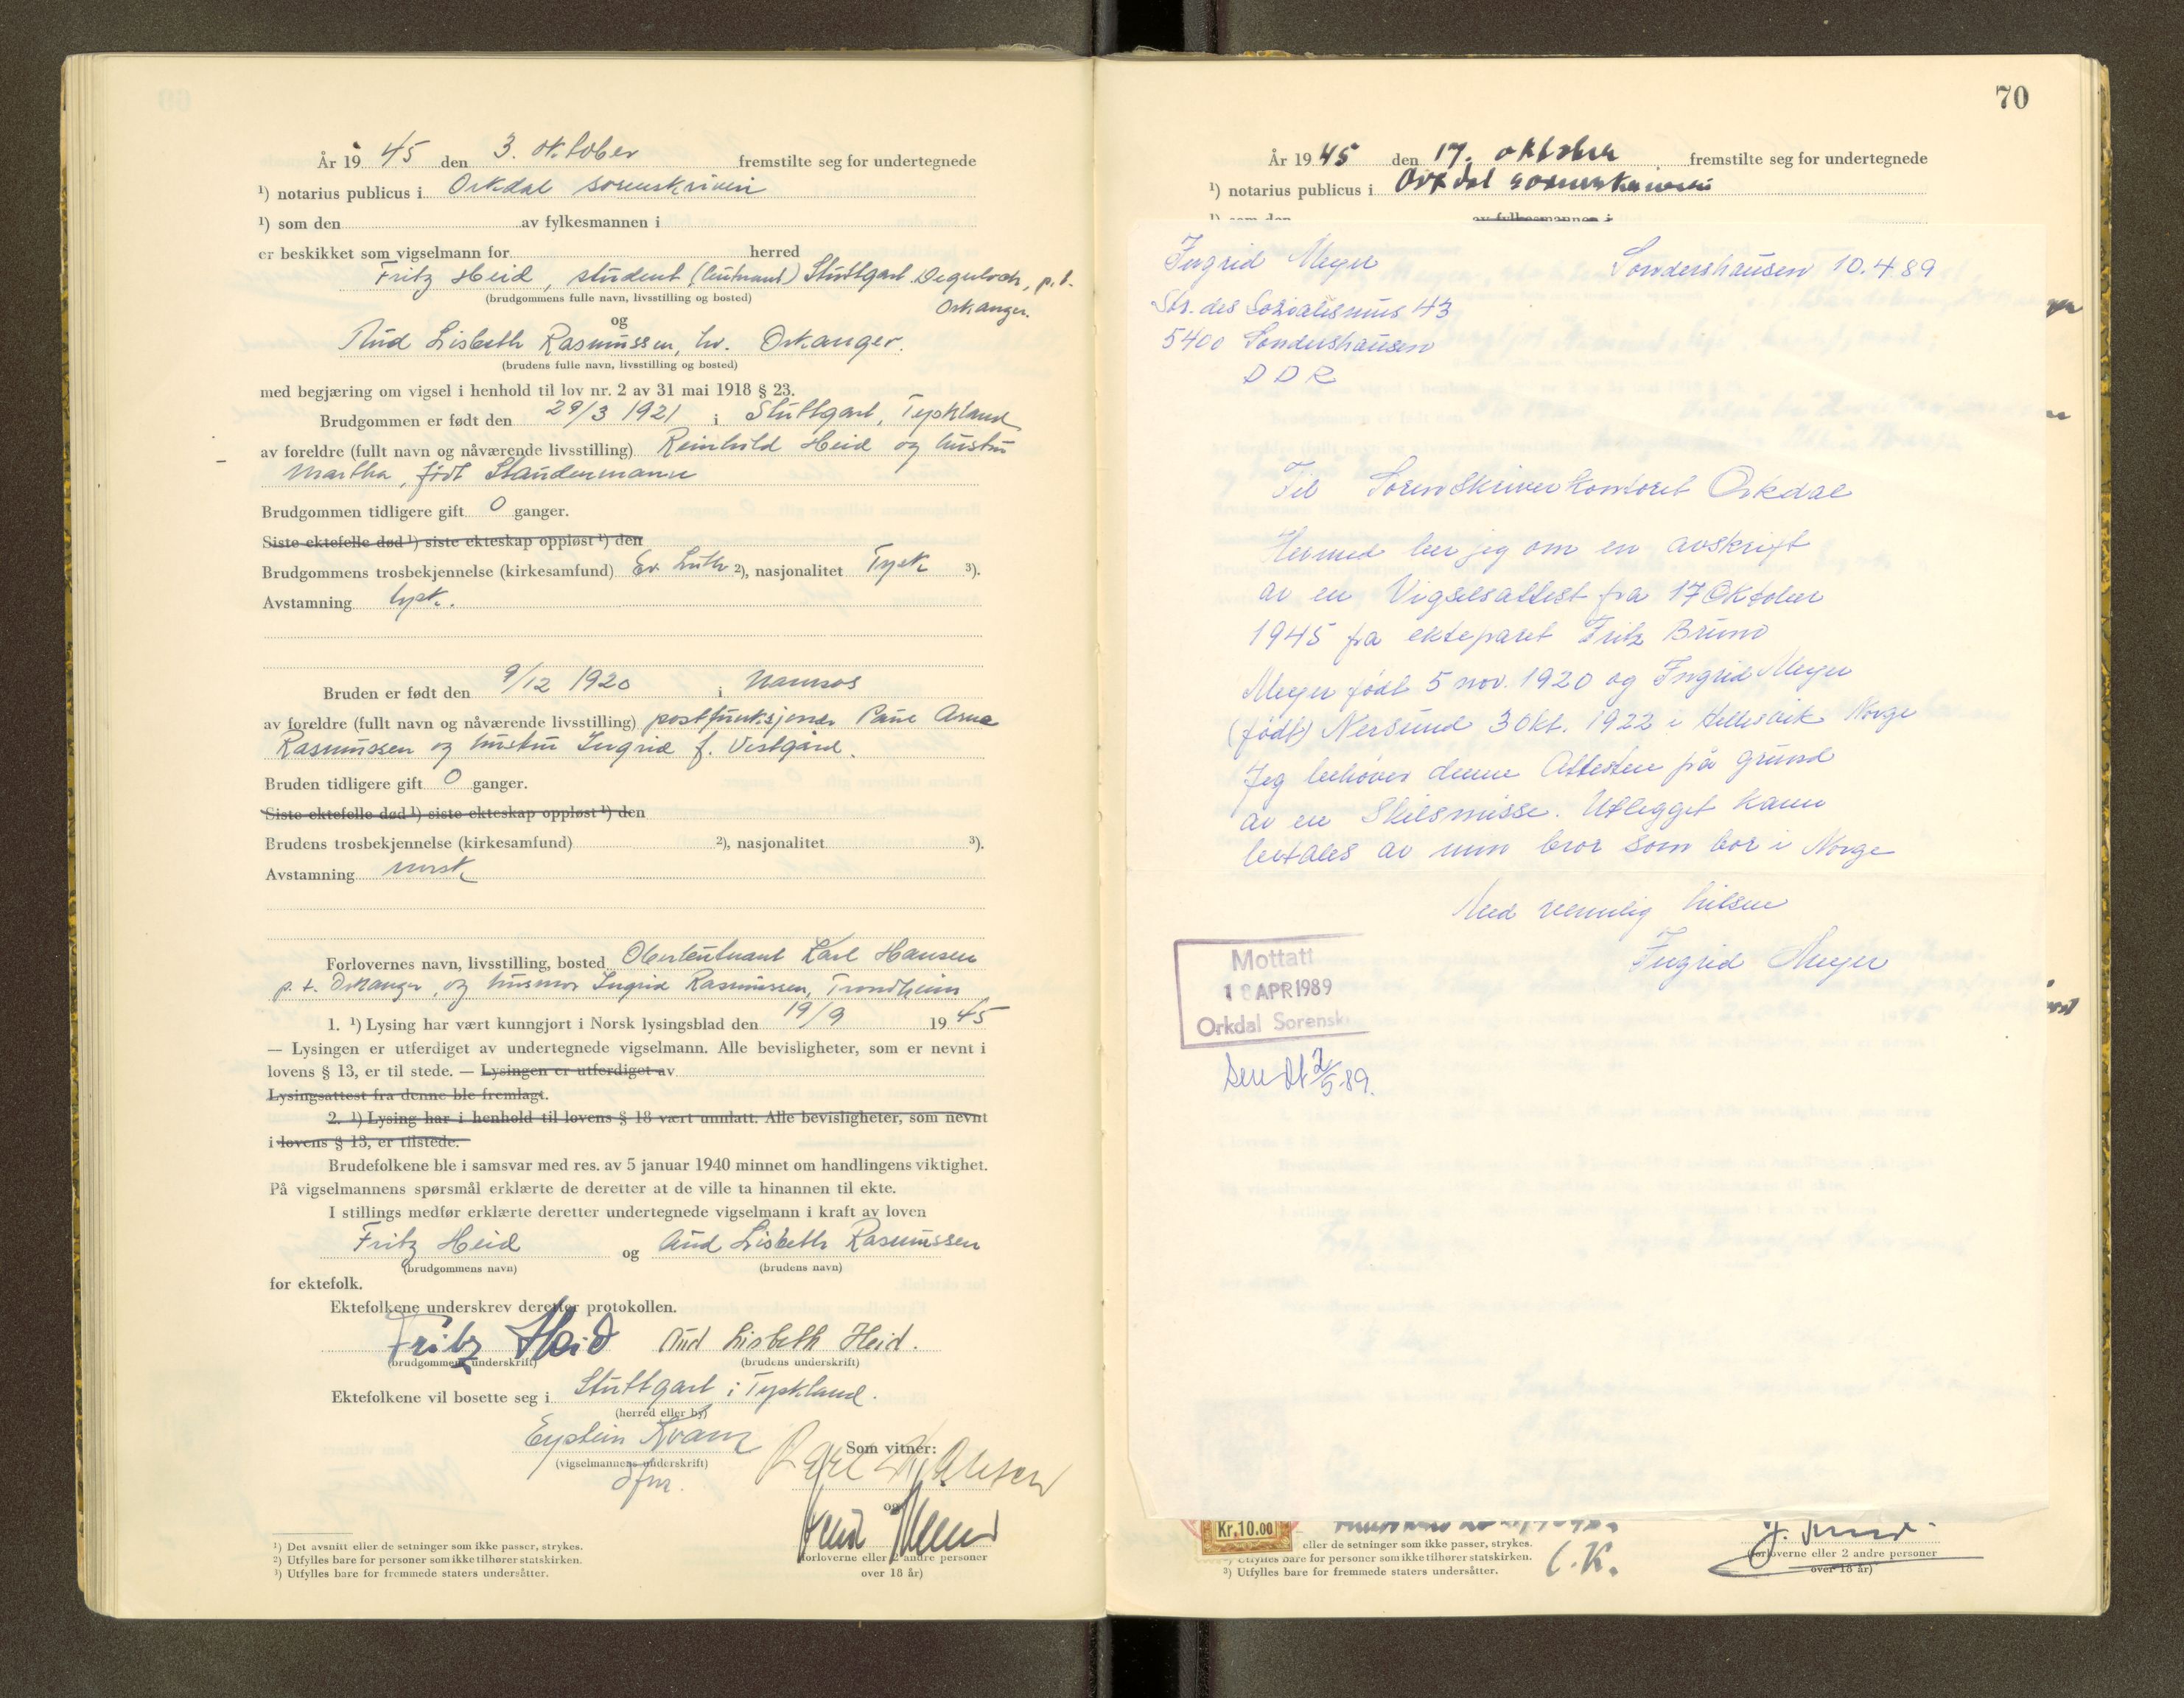 År 1945 den 3. oktober fremstilte seg for undertegnede
¹) notarius publicus i Orkdal sorenskriveri
¹) som den av fylkesmannen i
er beskikket som vigselmann for herred
Fritz Heid, student (løutnant) Stuttgart Degerloch, p.t.
Orkanger.
(brudgommens fulle navn, livsstilling og bosted)
og
Aud Lisbeth Rasmussen, hv. Orkanger.
(brudens fulle navn, livsstilling og bosted)
med begjæring om vigsel i henhold til lov nr. 2 av 31 mai 1918 § 23.
Brudgommen er født den 29/3 1921 i Stuttgart, Tyskland
av foreldre (fullt navn og nåværende livsstilling) Reinhold Heid og hustru
Martha, født Staudenmann
Brudgommen tidligere gift 0 ganger.
Siste ektefelle død ¹) siste ekteskap oppløst ¹) den
Brudgommens trosbekjennelse (kirkesamfund) Ev. Luth ²), nasjonalitet Tysk ³).
Avstamning tysk.
Bruden er født den 9/12 1920 i Namsos
av foreldre (fullt navn og nåværende livsstilling) postfunksjonær Paul Arne
Rasmussen og hustru Ingrid f. Vestgård.
Bruden tidligere gift 0 ganger.
Siste ektefelle død ¹) siste ekteskap oppløst ¹) den
Brudens trosbekjennelse (kirkesamfund) ²), nasjonalitet ³).
Avstamning norsk
Forlovernes navn, livsstilling, bosted Oberleutnant Karl Hansen
p.t. Orkanger, og husmor Ingrid Rasmussen, Trondheim
1. ¹) Lysing har vært kunngjort i Norsk lysingsblad den 19/9 1945
— Lysingen er utferdiget av undertegnede vigselmann. Alle bevisligheter, som er nevnt i
lovens § 13, er til stede. — Lysingen er utferdiget av
Lysingsattest fra denne ble fremlagt.
2. ¹) Lysing har i henhold til lovens § 18 vært unnlatt. Alle bevisligheter, som nevnt
i lovens § 13, er tilstede.
Brudefolkene ble i samsvar med res. av 5 januar 1940 minnet om handlingens viktighet.
På vigselmannens spørsmål erklærte de deretter at de ville ta hinannen til ekte.
I stillings medfør erklærte deretter undertegnede vigselmann i kraft av loven
Fritz Heid og Aud Lisbeth Rasmussen
(brudgommens navn) (brudens navn)
for ektefolk.
Ektefolkene underskrev deretter protokollen.
Fritz Heid Aud Lisbeth Heid.
(brudgommens underskrift) (brudens underskrift)
Ektefolkene vil bosette seg i Stuttgart i Tyskland.
(herred eller by)
Eystein Kvam
(vigselmannens underskrift)
dfm.
Som vitner:
og
(forloverne eller 2 andre personer
over 18 år)
¹) Det avsnitt eller de setninger som ikke passer, strykes.
²) Utfylles bare for personer som ikke tilhører statskirken.
³) Utfylles bare for fremmede staters undersåtter.
70
År 1945 den 17. oktober fremstilte seg for undertegnede
¹) notarius publicus i Orkdal sorenskriveri
¹) som den av fylkesmannen i
Ingrid Meyer Sondershausen 10.4 89
Str. des Sozialismus 43
5400 Sondershausen
DDR
Til Sorenskriverkontoret Orkdal
Hermed ber jeg om en avskrift
av en Vigselsattest fra 17 Oktober
1945 fra ekteparet Fritz Bruno
Meyer født 5 nov. 1920 og Ingrid Meyer
(født) Nersund 3 Okt. 1922 i Hellesvik Norge
Jeg behøver denne Attesten på grund
av en Skilsmisse. Utlegget kann
betales av min bror som bor i Norge
Med vennlig hilsen
Ingrid Meyer
Mottatt
18 APR 1989
Orkdal Sorensk
Sendt 2/5-89.
Kr. 10.00
eller de setninger som ikke passer, strykes.
²) Utfylles bare for personer som ikke tilhører statskirken.
³) Utfylles bare for fremmede staters undersåtter.
(forloverne eller 2 andre personer
over 18 år)